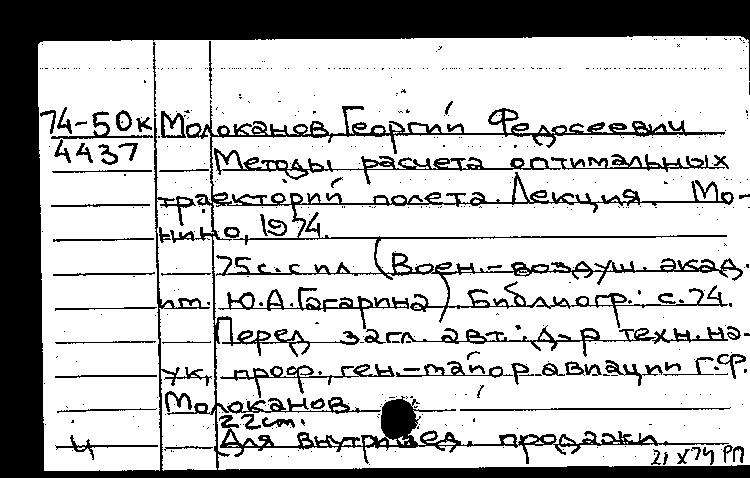 74-50к Молоканов, Георгий Федосеевич
4437 Методы расчета оптимальных
траекторий полета. Лекция. Мо-
нино, 1974.
75с. с ил. (Воен.-воздуш. акад.
им. Ю.А.Гагарина). Библиогр.: с.74.
Перед загл. авт.: д-р техн. на-
ук, проф., ген.-майор авиации Г.Ф.
Молоканов.
22см.
ч Для внутривед. продажи.
21 X 74 РП